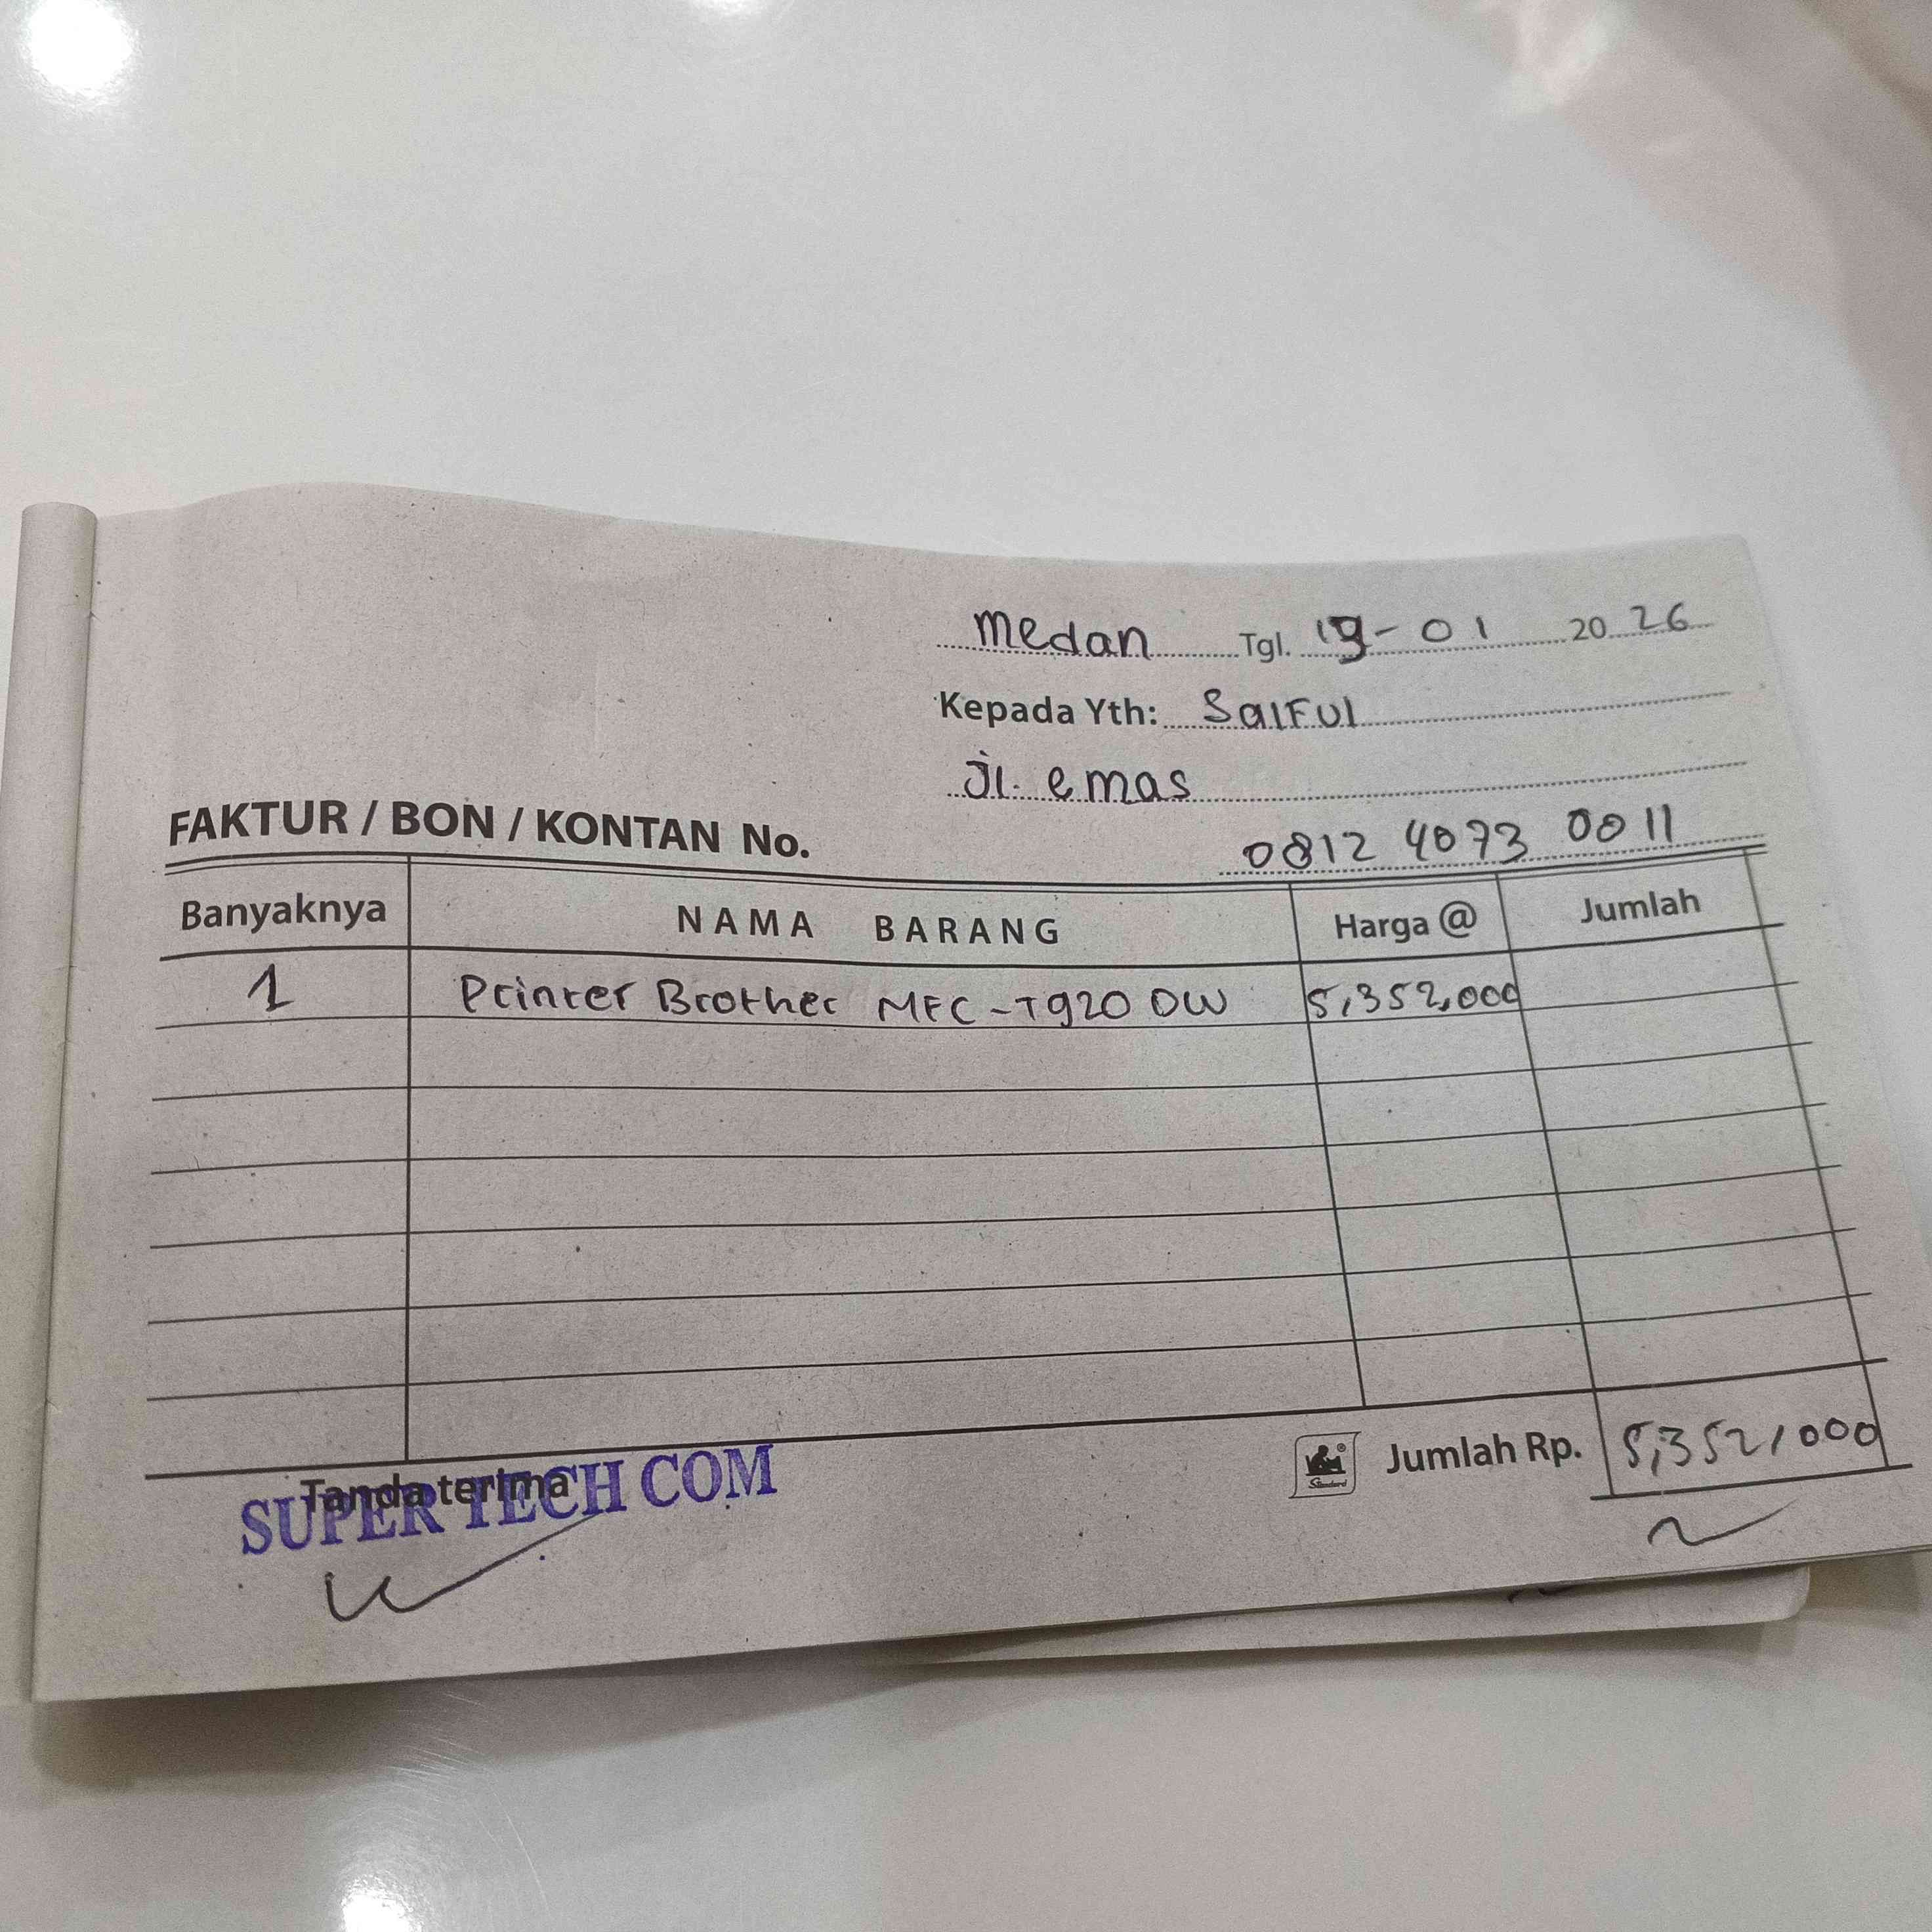 Medan Tgl. 19-01 2026
Kepada Yth: Saiful
Jl. emas
FAKTUR / BON / KONTAN No.
0812 4073 0011
Banyaknya NAMA BARANG Harga @ Jumlah
1 Printer Brother MFC-T920 DW 5,352,000
Jumlah Rp. 5,352,000
Standard
Tanda terima
SUPER TECH COM